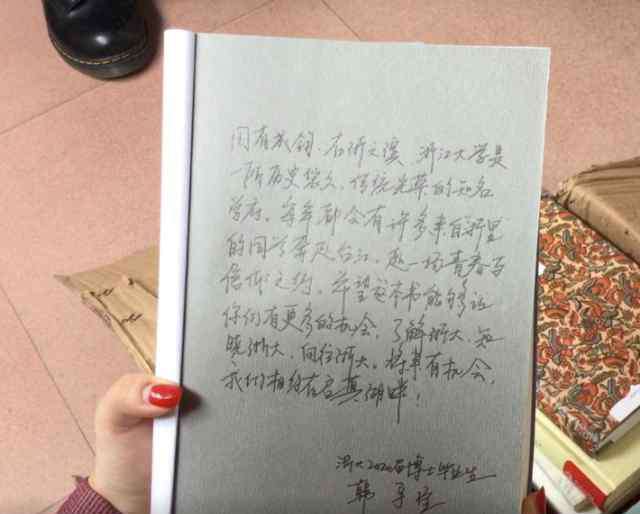 国有成均，在浙之滨。浙江大学是
一所历史悠久、传统光荣的知名
学府。每年都会有许多来自浙里
的同学奔赴台江，赴一场青春与
信仰之约。希望这本书能够让
你们有更多的机会，了解浙大，知
晓浙大，向往浙大。将来有机会，
我们相约在启真湖畔！
浙大2020届博士毕业生
韩